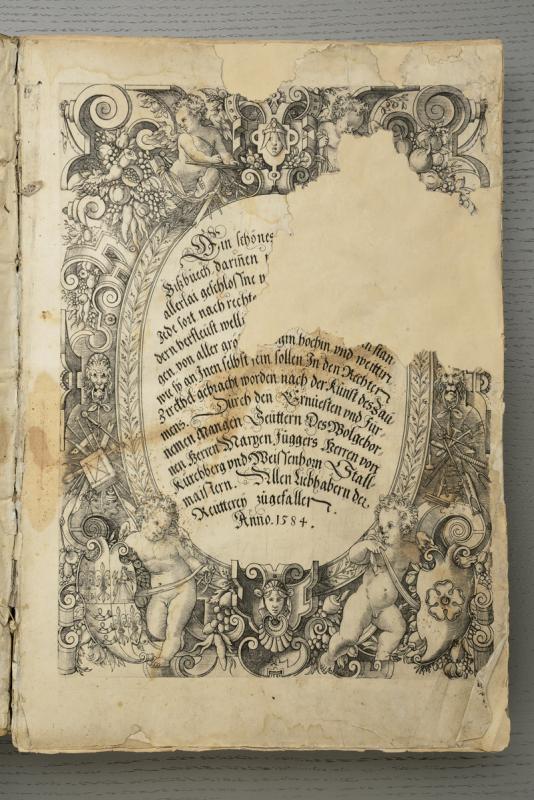 Ein schönes
Bißbüech darinen
allerlai geschlossne
Jede sort nach recht
dern verfleüst well
gen, von aller gro gin hochin vnd weittin
wie sy an Jnen selbst sein sollen Jn den Rechten
Zwekh gebracht worden nach der Kunst des Zau
mens. Durch den Ernuesten vnd Für-
nemen Mangen Seüttern Des Wolgebor-
nen Herren Marxen Függers Herren von
Kürchberg vnd Weissenhorn Stall-
maistern. Allen Liebhabern der
Reutterey zugefallen
Anno. 1584.